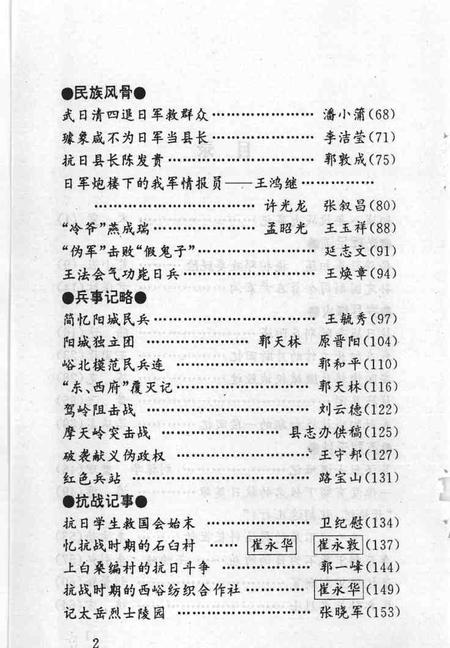 ●民族风骨●
武日清四退日军救群众……………………潘小蒲(68)
璩象咸不为日军当县长……………………李洁莹(71)
抗日县长陈发贵……………………郭敦成(75)
日军炮楼下的我军情报员——王鸿继……………
……………………许光龙 张叙昌(80)
“冷爷”燕成瑞……………………孟昭光 王玉祥(88)
“伪军”击败“假鬼子”……………………延志文(91)
王法会气功毙日兵……………………王焕章(94)
●兵事记略●
简忆阳城民兵……………………王毓秀(97)
阳城独立团……………………郭天林 原晋阳(104)
峪北模范民兵连……………………郭和平(110)
“东、西府”覆灭记……………………郭天林(116)
驾岭阻击战……………………刘云德(122)
摩天岭突击战……………………县志办供稿(125)
破袭献义伪政权……………………王守邦(127)
红色兵站……………………路宝山(131)
●抗战记事●
抗日学生救国会始末……………………卫纪慰(134)
忆抗战时期的石臼村……………………崔永华 崔永敦(137)
上白桑编村的抗日斗争……………………郭一峰(144)
抗战时期的西峪纺织合作社……………………崔永华(149)
记太岳烈士陵园……………………张晓军(153)
2